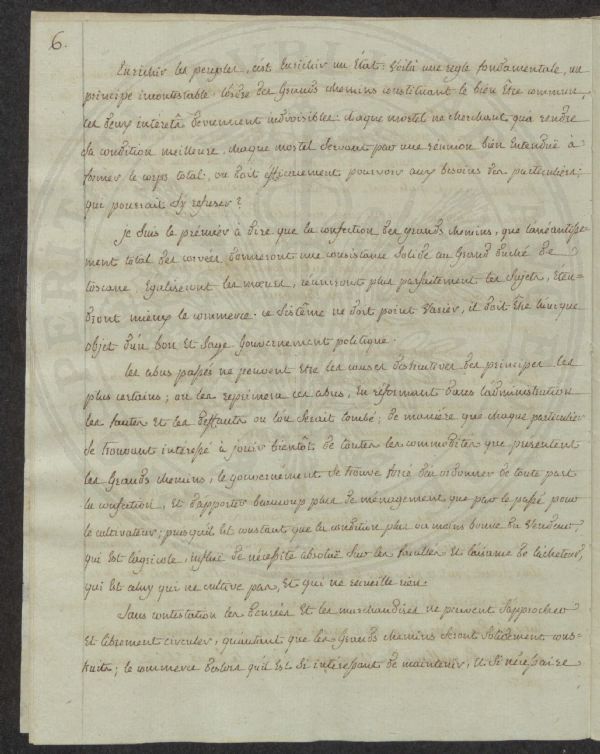 6.
Enrichir les peuples, c'est Enrichir un Etat: Voilà une regle fondamentale, un
principe incontestable. l'ordre des Grands chemins constituant le bien être commun,
ces deux intérêts deviennent indivisibles: chaque mortel ne cherchant qu'à rendre
sa condition meilleure, chaque mortel servant par une réunion bien Entenduë à
former le corps total, on doit efficacement pourvoir aux besoins des particuliers;
qui pourrait s'y refuser?
Je suis le prémier à dire que la confection des grands chemins, que l'anéantisse-
ment total des corvées donneront une consistance solide au Grand duché de
toscane, Egaliseront les mœurs, réuniront plus parfaitement les sujets, Eten-
dront mieux le commerce. ce sistême ne doit point varier, il doit Etre l'unique
objet d'un bon et sage Gouvernement politique.
les abus passés ne peuvent etre les causes destructives des principes les
plus certains; on les réprimera ces abus, En réformant dans l'administration
les fautes Et les deffauts ou l'on serait tombé; de manière que chaque particulier
se trouvant intéressé à jouir bientôt de toutes les commodités que présentent
les Grands chemins, le gouvernement se trouve forcé d'en ordonner de toute part
la confection, Et d'apporter beaucoup plus de ménagement que par le passé pour
le cultivateur; puisqu'il est constant que la condition plus ou moins bonne du Vendeur,
qui Est l'agricole, influë de nécessité absoluë sur les facultés Et l'aisance de l'acheteur,
qui est celuy qui ne cultive pas, Et qui ne recueille rien.
Sans contestation les denrées Et les marchandises ne peuvent s'approcher
Et librement circuler, qu'autant que les Grands chemins seront solidement cons-
truits; le commerce deslors qu'il Est si intéressant de maintenir, Et si nécessaire